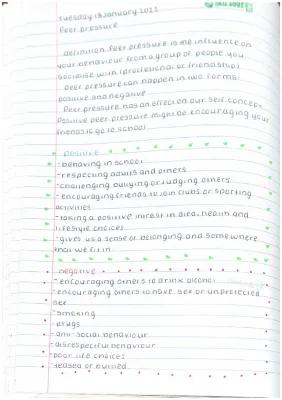 Tuesday 18 January 2022
Peer pressure
definition: Peer pressure is the influence on
your behaviour from a group of people you
socialise with (professional or friendship)
Peer pressure can happen in two forms:
positive and negative
Peer pressure has an effect on our self concept.
Positive peer pressure might be encouraging your
friends to go to school
positive
-behaving in school
-respecting adults and others
-challenging bullying or judging others
-encouraging friends to join clubs or sporting
activities
-taking a positive interest in diet, health and
lifestyle choices
-gives us a sense of belonging and somewhere
that we fit in
negative
-encouraging others to drink alcohol
-encouraging others to have sex or unprotected
sex
-smoking
-drugs
-anti-social behaviour
-disrespectful behaviour
-poor life choices
-teased or bullied